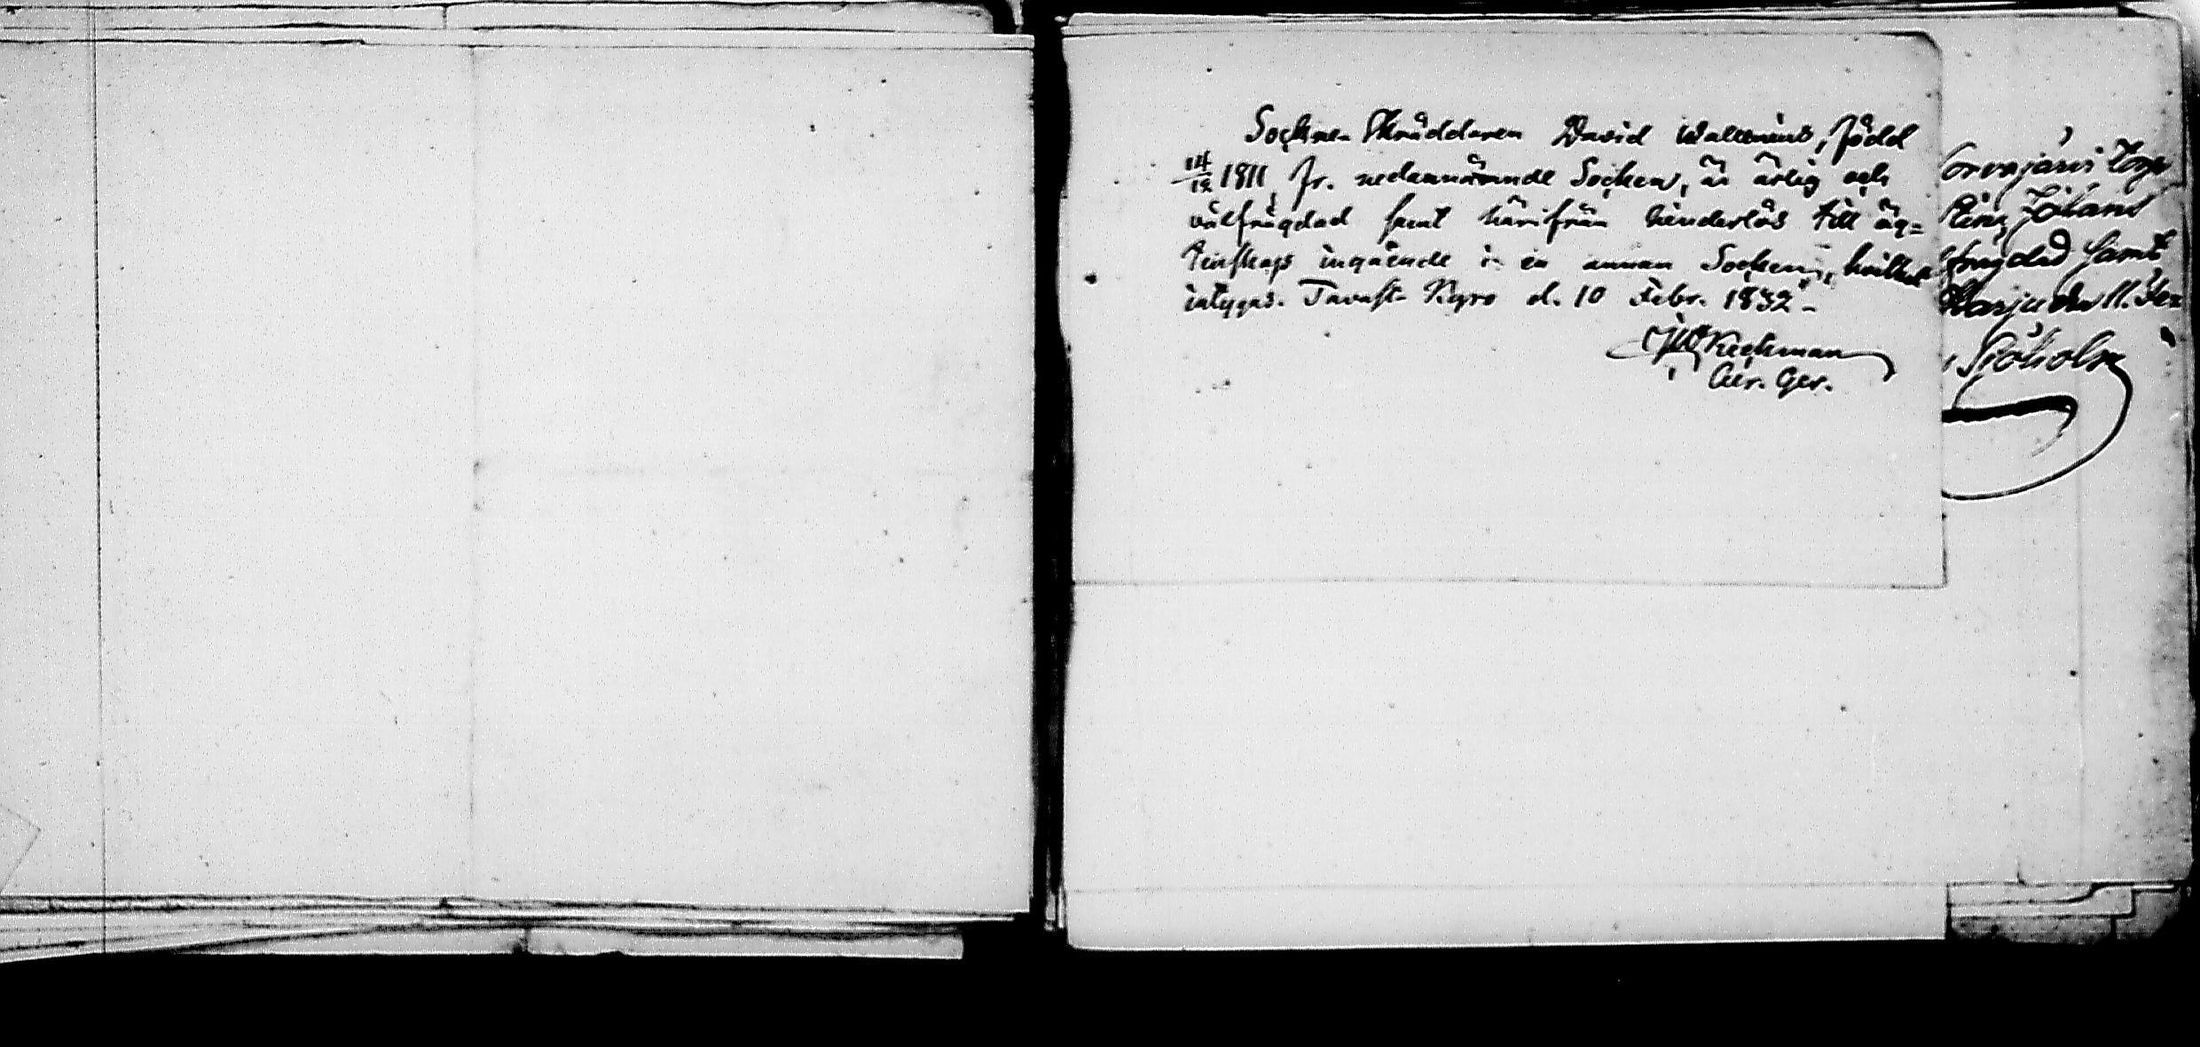 Sockne Skräddaren David Wallenius, född
14/12 1811, fr. nedannämnde Socken, är ärlig och
välfrägdad samt härifrån hinderlös till äg-
tenskaps ingående i en annan Socken, hvilket
intygas. Tavast- Kyro d. 10 Febr. 1832 -
Keckman
orvajärvi Torp
Johans
frägdad samt
Karju den 11. Fe
Sjöholm